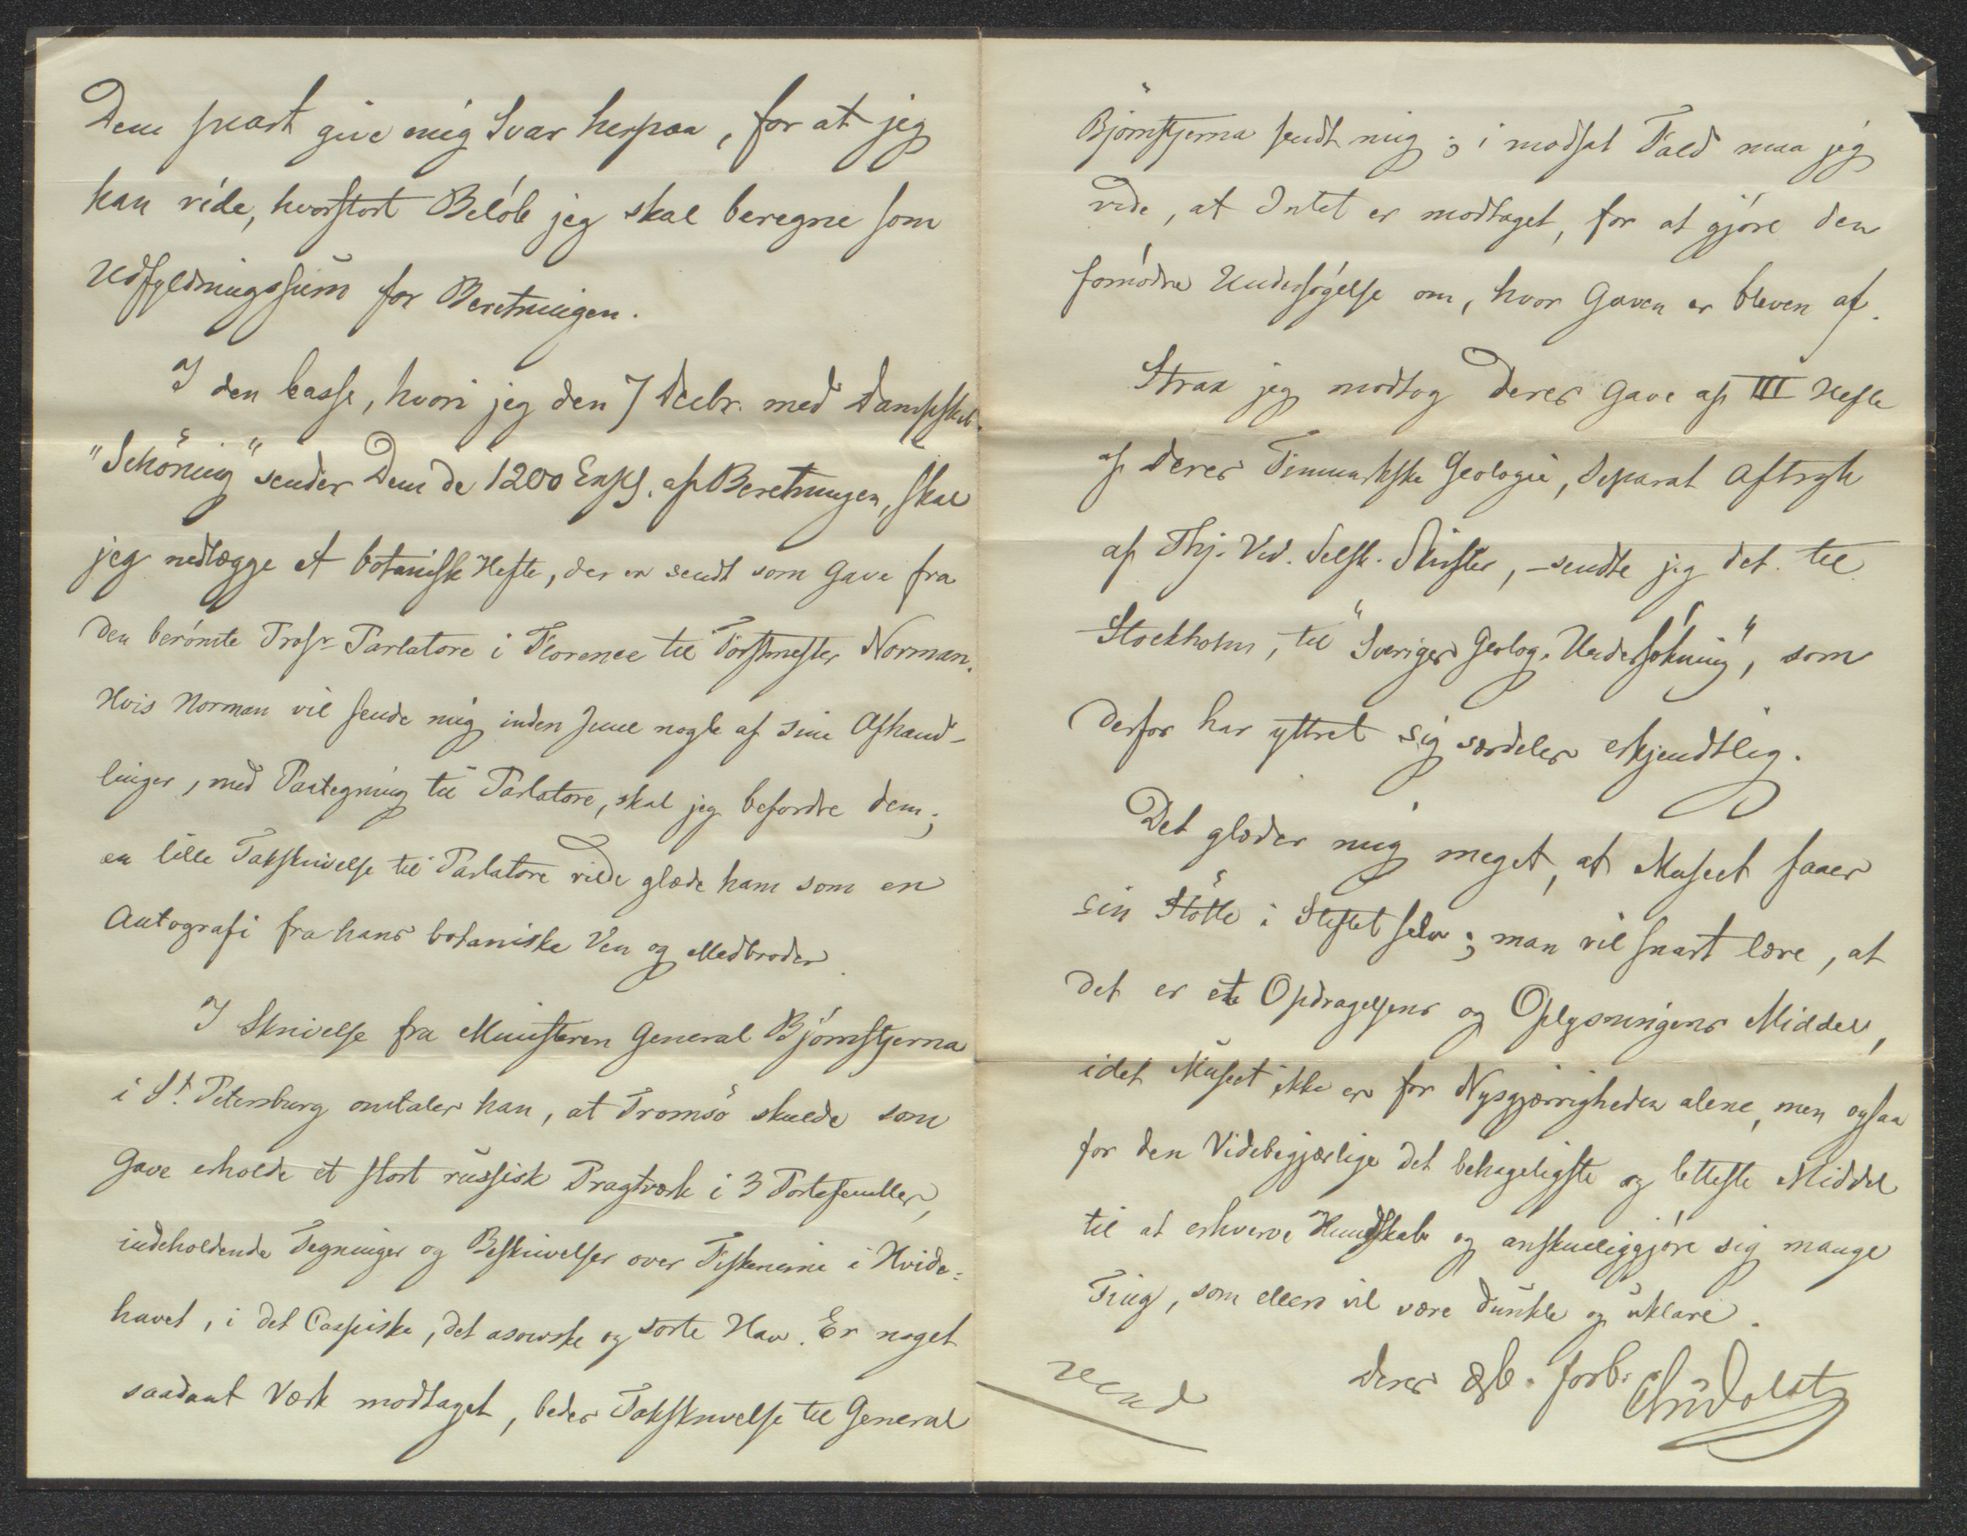 Dem snart give mig Svar herpaa, for at jeg
kan vide, hvorstort Beløb jeg skal beregne som
Udfyldningssum for Beretningen.
I den Casse, hvori jeg den 7 Decbr. med Dampskib.
"Schöning" sender Dem de 1200 Expl. af Beretningen, skal
jeg nedlægge et botanisk Hefte, der er sendt som Gave fra
den berömte Profr Parlatore i Florence til Forstmester Norman.
Hvis Norman vil sende mig inden June nogle af sine Afhand-
linger, med Paategning til Parlatore, skal jeg befordre dem;
en lille Takskrivelse til Parlatore vilde glæde ham som en
Autografi fra hans botaniske Ven og Medbroder.
I Skrivelse fra Ministeren General Björnstjerna
i St. Petersburg omtaler han, at Tromsö skulde som
Gave erholde et stort russisk Pragtværk i 3 Portefeuiller,
indeholdende Tegninger og Beskrivelser over Fiskerierne i Hvide-
havet, i det Caspiske, det asowske og sorte Hav. Er noget
saadant Værk modtaget, bedes Takskrivelse til General
Björnstjerna sendt mig; i modsat Fald maa jeg
vide, at Intet er modtaget, for at gjöre den
fornödne Undersögelse om, hvor Gaven er bleven af.
Strax jeg modtog Deres Gave af III Hefte
af Deres Finmarkske Geologie, Separat Aftryk
af Thj. Vid. Selsk. Skrifter, - sendte jeg det til
Stockholm, til "Sveriges Geolog. Undersökning", som
derfor har yttret sig særdeles erkjendtlig.
Det glæder mig meget, at Museet faaer
sin Stötte i Stiftet selv; man vil snart lære, at
det er et Opdragelsens og Oplysningens Middel,
idet Museet ikke er for Nysgjærrigheden alene, men ogsaa
for den Videbegjærlige det behageligste og letteste Middel
til at erhverve Kundskab og anskueliggjöre sig mange
Ting, som ellers vil være dunkle og uklare.
Deres erb. forb.
Vend